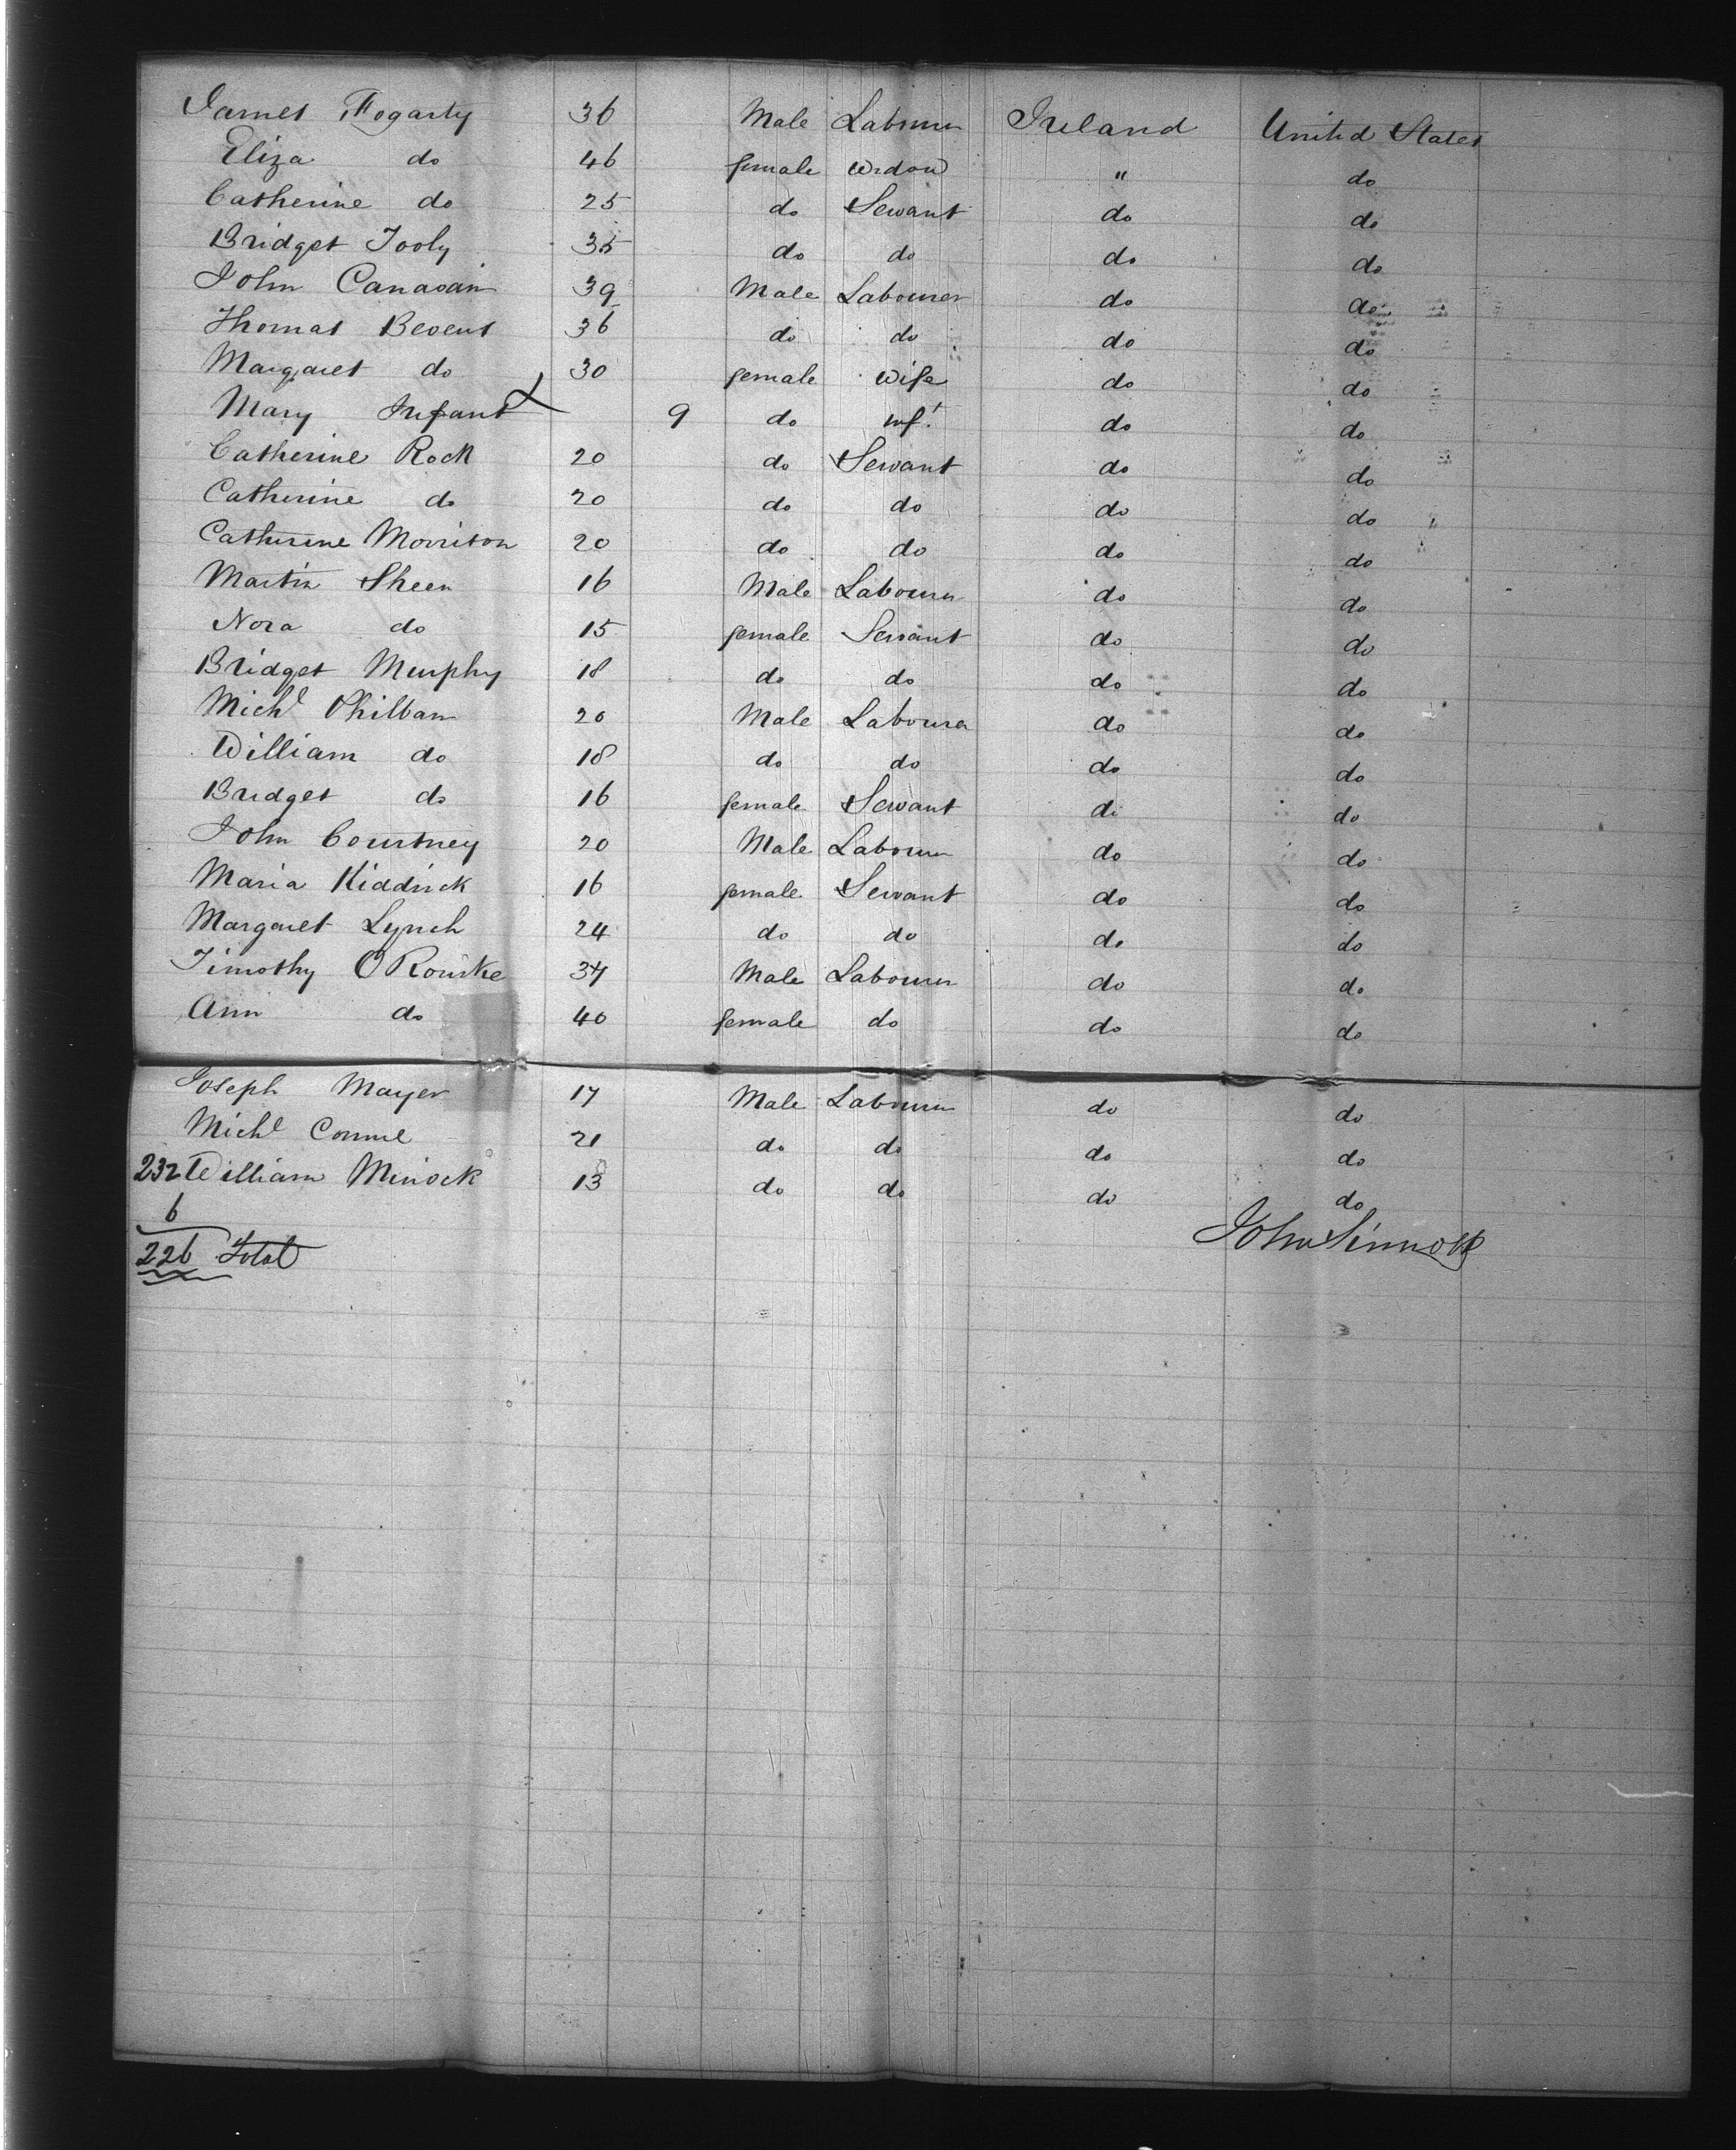 James Fogarty 36 Male Labourer Ireland United States
Eliza do 46 female Widow " do
Catherine do 25 do Servant do do
Bridget Tooly 35 do do do do
John Canavain 39 Male Labourer do do
Thomas 36 do do do do
Margaret do 30 female wife do do
Mary Infant 9 do inf! do do
Catherine Rock 20 do Servant do do
Catherine do 20 do do do do
Catherine Morrison 20 do do do do
Martin Sheen 16 Male Labourer do do
Nora do 15 female Servant do do
Bridget Murphy 18 do do do do
Michl Philban 20 Male Labourer do do
William do 18 do do do do
Bridget do 16 female Servant do do
John Courtney 20 Male Labourer do do
Maria Kiddrick 16 female Servant do do
Margaret Lynch 24 do do do do
Timothy O Rourke 37 Male Labourer do do
Ann do 40 female do do do
Joseph Mayer 17 Male Labourer do do
Michl 21 do do do do
232 William Minock 13 do do do do
6
226 Total John Sinnott